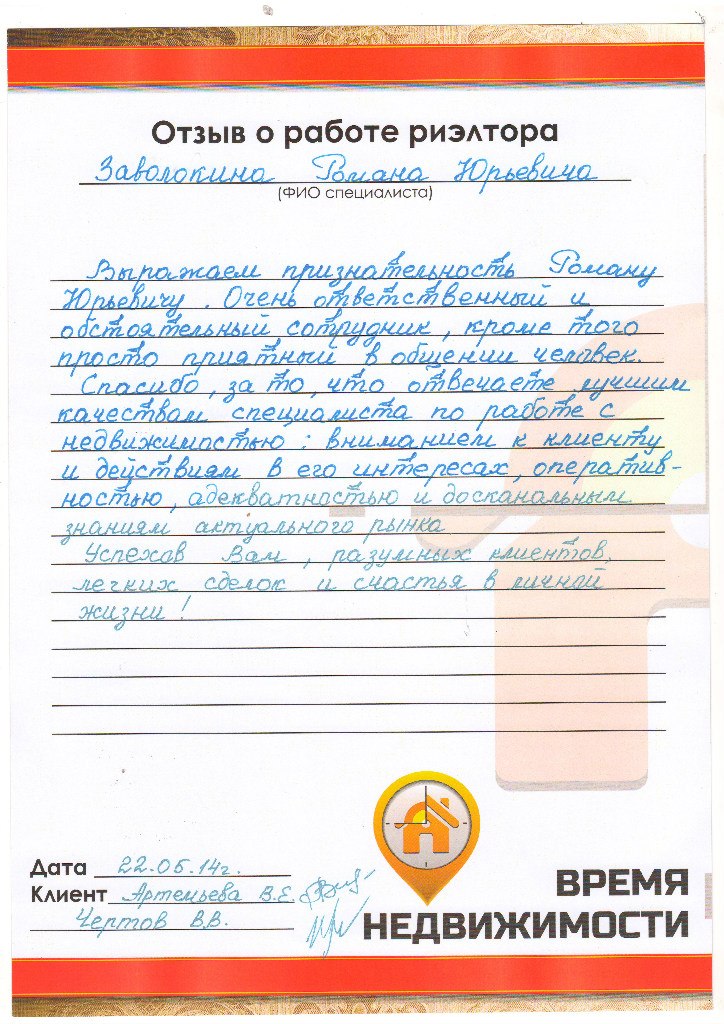 Отзыв о работе риэлтора
Заволокина Романа Юрьевича
(ФИО специалиста)
Выражаем признательность Роману
Юрьевичу. Очень ответственный и
обстоятельный сотрудник, кроме того
просто приятный в общении человек.
Спасибо, за то, что отвечаете лучшим
качествам специалиста по работе с
недвижимостью: вниманием к клиенту
и действиям в его интересах, оператив-
ностью, адекватностью и досканальным
знаниям актуального рынка
Успехов Вам, разумных клиентов,
легких сделок и счастья в личной
жизни!
Дата 22.05.14г.
Клиент Артемьева В.Е.
Чертов В.В.
ВРЕМЯ
НЕДВИЖИМОСТИ